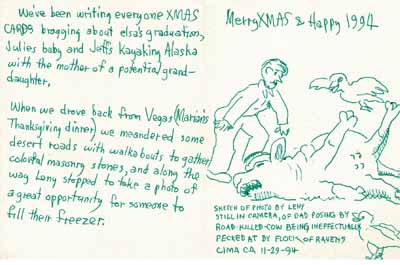 We've been writing everyone XMAS
CARDS bragging about elsa's graduation,
Julies baby and Jeffs Kayaking Alaska
with the mother of a potential grand-
daughter.
When we drove back from Vegas (Marion's
Thanksgiving dinner) we meandered some
desert roads with walkabouts to gather
colorful masonry stones, and along the
way Leny stopped to take a photo of
a great opportunity for someone to
fill their freezer.
Merry XMAS & Happy 1994
SKETCH OF PHOTO BY LENY
STILL IN CAMERA, OF DAD POSING BY
ROAD-KILLED-COW BEING INEFFECTUALLY
PECKED AT BY FLOCK OF RAVENS
CIMA CA 11-29-94